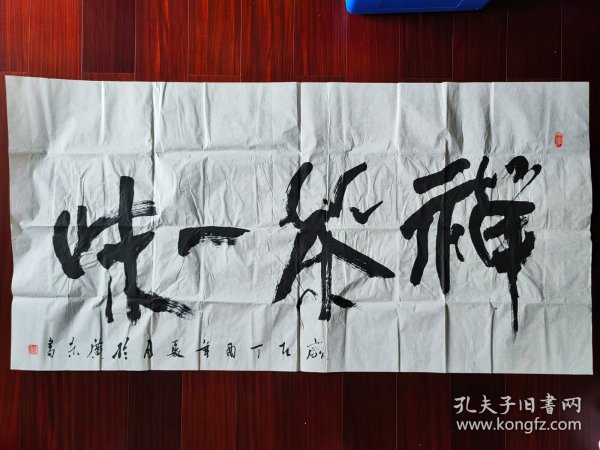 禅茶一味
歲在丁酉年夏月於廣东書
孔夫子旧書网
www.kongfz.com